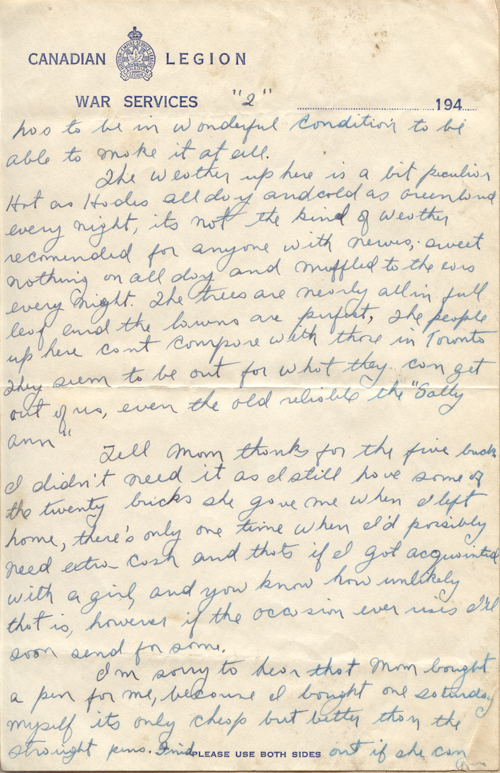 CANADIAN LEGION
WAR SERVICES "2" 194
has to be in wonderful condition to be
able to make it at all.
The weather up here is a bit peculiar
Hot as Hades all day and cold as Greenland
every night, its not the kind of weather
recomended for anyone with nerves, sweet
nothing on all day and muffled to the ears
every night. The trees are nearly all in full
leaf and the lawns are perfect, The people
up here cant compare with those in Toronto
They seem to be out for what they can get
out of us, even the old reliable the "Sally
ann"
Tell Mom thanks for the five bucks
I didn't need it as I still have some of
the twenty bucks she gave me when I left
home, there's only one time when I'd possibly
need extra cash and thats if I got acquainted
with a girl, and you know how unlikely
that is, however if the occasion ever rises I'll
soon send for some.
I'm sorry to hear that Mom bought
a pen for me, because I bought one saturday
myself its only cheap but better than the
straight pens. Find out if she can
PLEASE USE BOTH SIDES